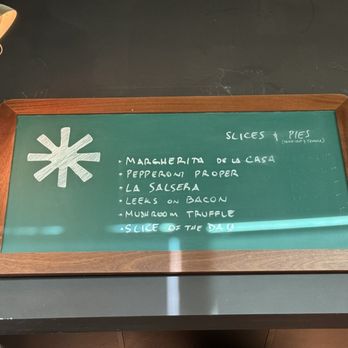 SLICES & PIES
• MARGHERITA DE LA CASA
• PEPPERONI PROPER
• LA SALSERA
• LEEKS ON BACON
• MUSHROOM TRUFFLE
• SLICE OF THE DAY